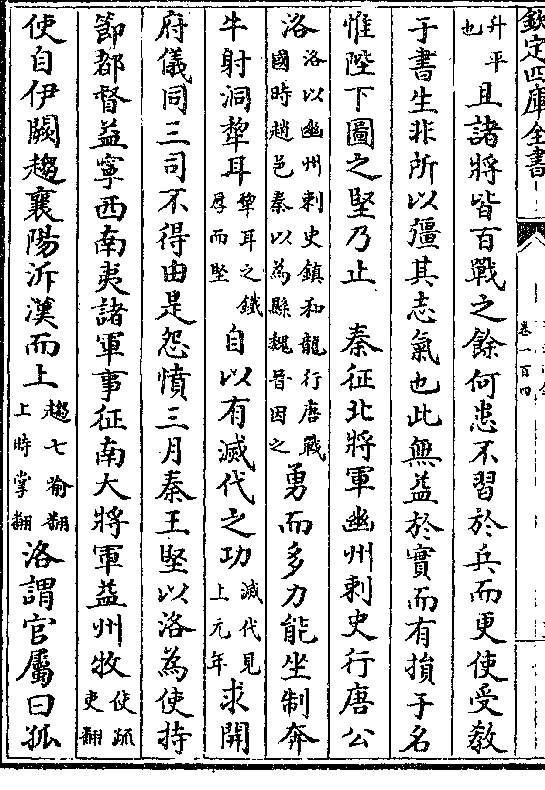 欽定四庫全書
卷一百四
升平也且諸將皆百戰之餘何患不習於兵而更使受教
于書生非所以彊其志氣也此無益於實而有損于名
惟陛下圖之堅乃止　秦征北將軍幽州刺史行唐公
洛洛以幽州刺史鎮和龍行唐戰國時趙邑秦以為縣魏晉因之勇而多力能坐制奔
牛射洞犂耳犂耳之鐵厚而堅自以有滅代之功滅代見上元年求開
府儀同三司不得由是怨憤三月秦王堅以洛為使持
節都督益寧西南夷諸軍事征南大將軍益州牧使疏吏翻
使自伊闕趨襄陽泝漢而上趨七喻翻上時掌翻洛謂官屬曰孤